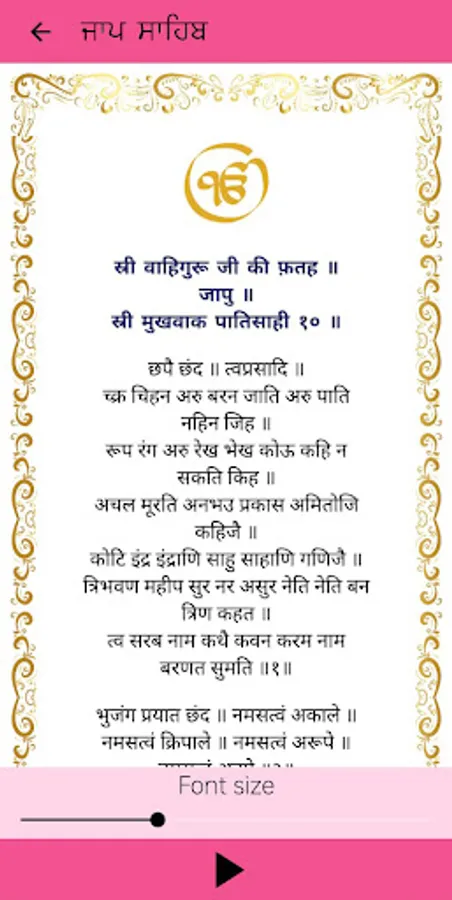 ਜਾਪ ਸਾਹਿਬ
ੴ
स्री वाहिगुरू जी की फ़तह ॥
जापु ॥
स्री मुखवाक पातिसाही १० ॥
छपै छंद ॥ त्वप्रसादि ॥
च्क्र चिहन अरु बरन जाति अरु पाति
नहिन जिह ॥
रूप रंग अरु रेख भेख कोऊ कहि न
सकति किह ॥
अचल मूरति अनभउ प्रकास अमितोजि
कहिजै ॥
कोटि इंद्र इंद्राणि साहु साहाणि गणिजै ॥
त्रिभवण महीप सुर नर असुर नेति नेति बन
त्रिण कहत ॥
त्व सरब नाम कथै कवन करम नाम
बरणत सुमति ॥१॥
भुजंग प्रयात छंद ॥ नमसत्वं अकाले ॥
नमसत्वं क्रिपाले ॥ नमसत्वं अरूपे ॥
Font size